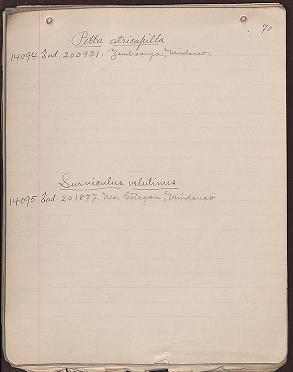 70
Pitta atricapilla
14094 Ind. 200931. Zamboanga, Mindanao.
Surniculus velutinus
14095 Ind. 201877. Near Catagan, Mindanao